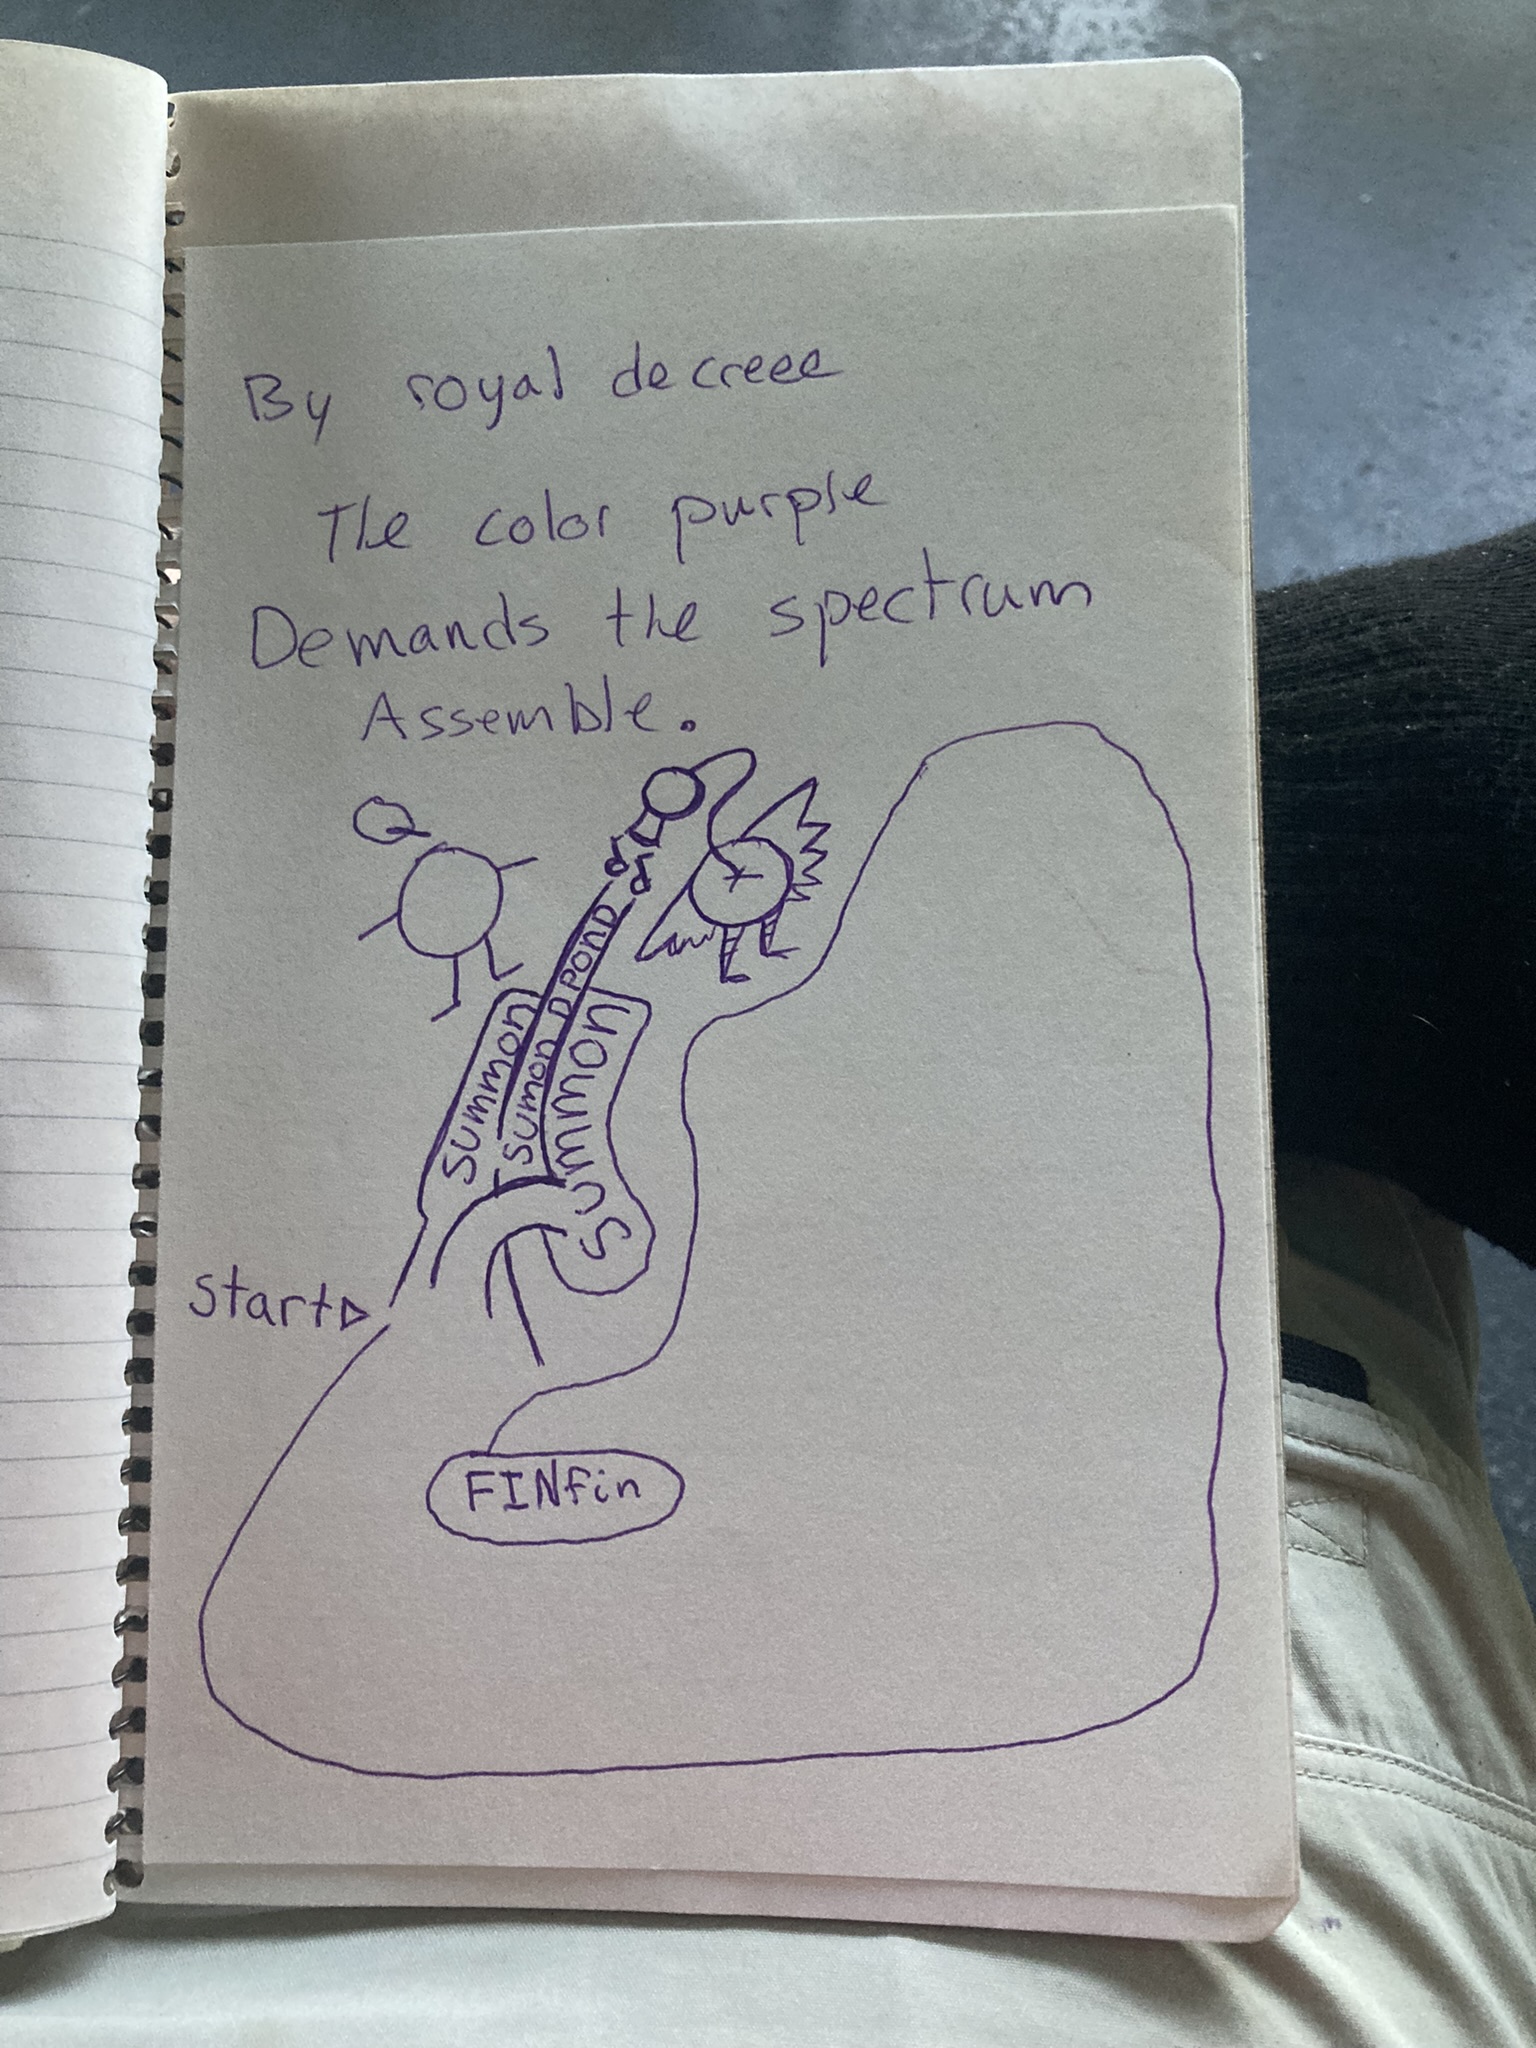 By royal decreee
The color purple
Demands the spectrum
Assemble.
POND
summon
sumon D
summon
start
FINfin